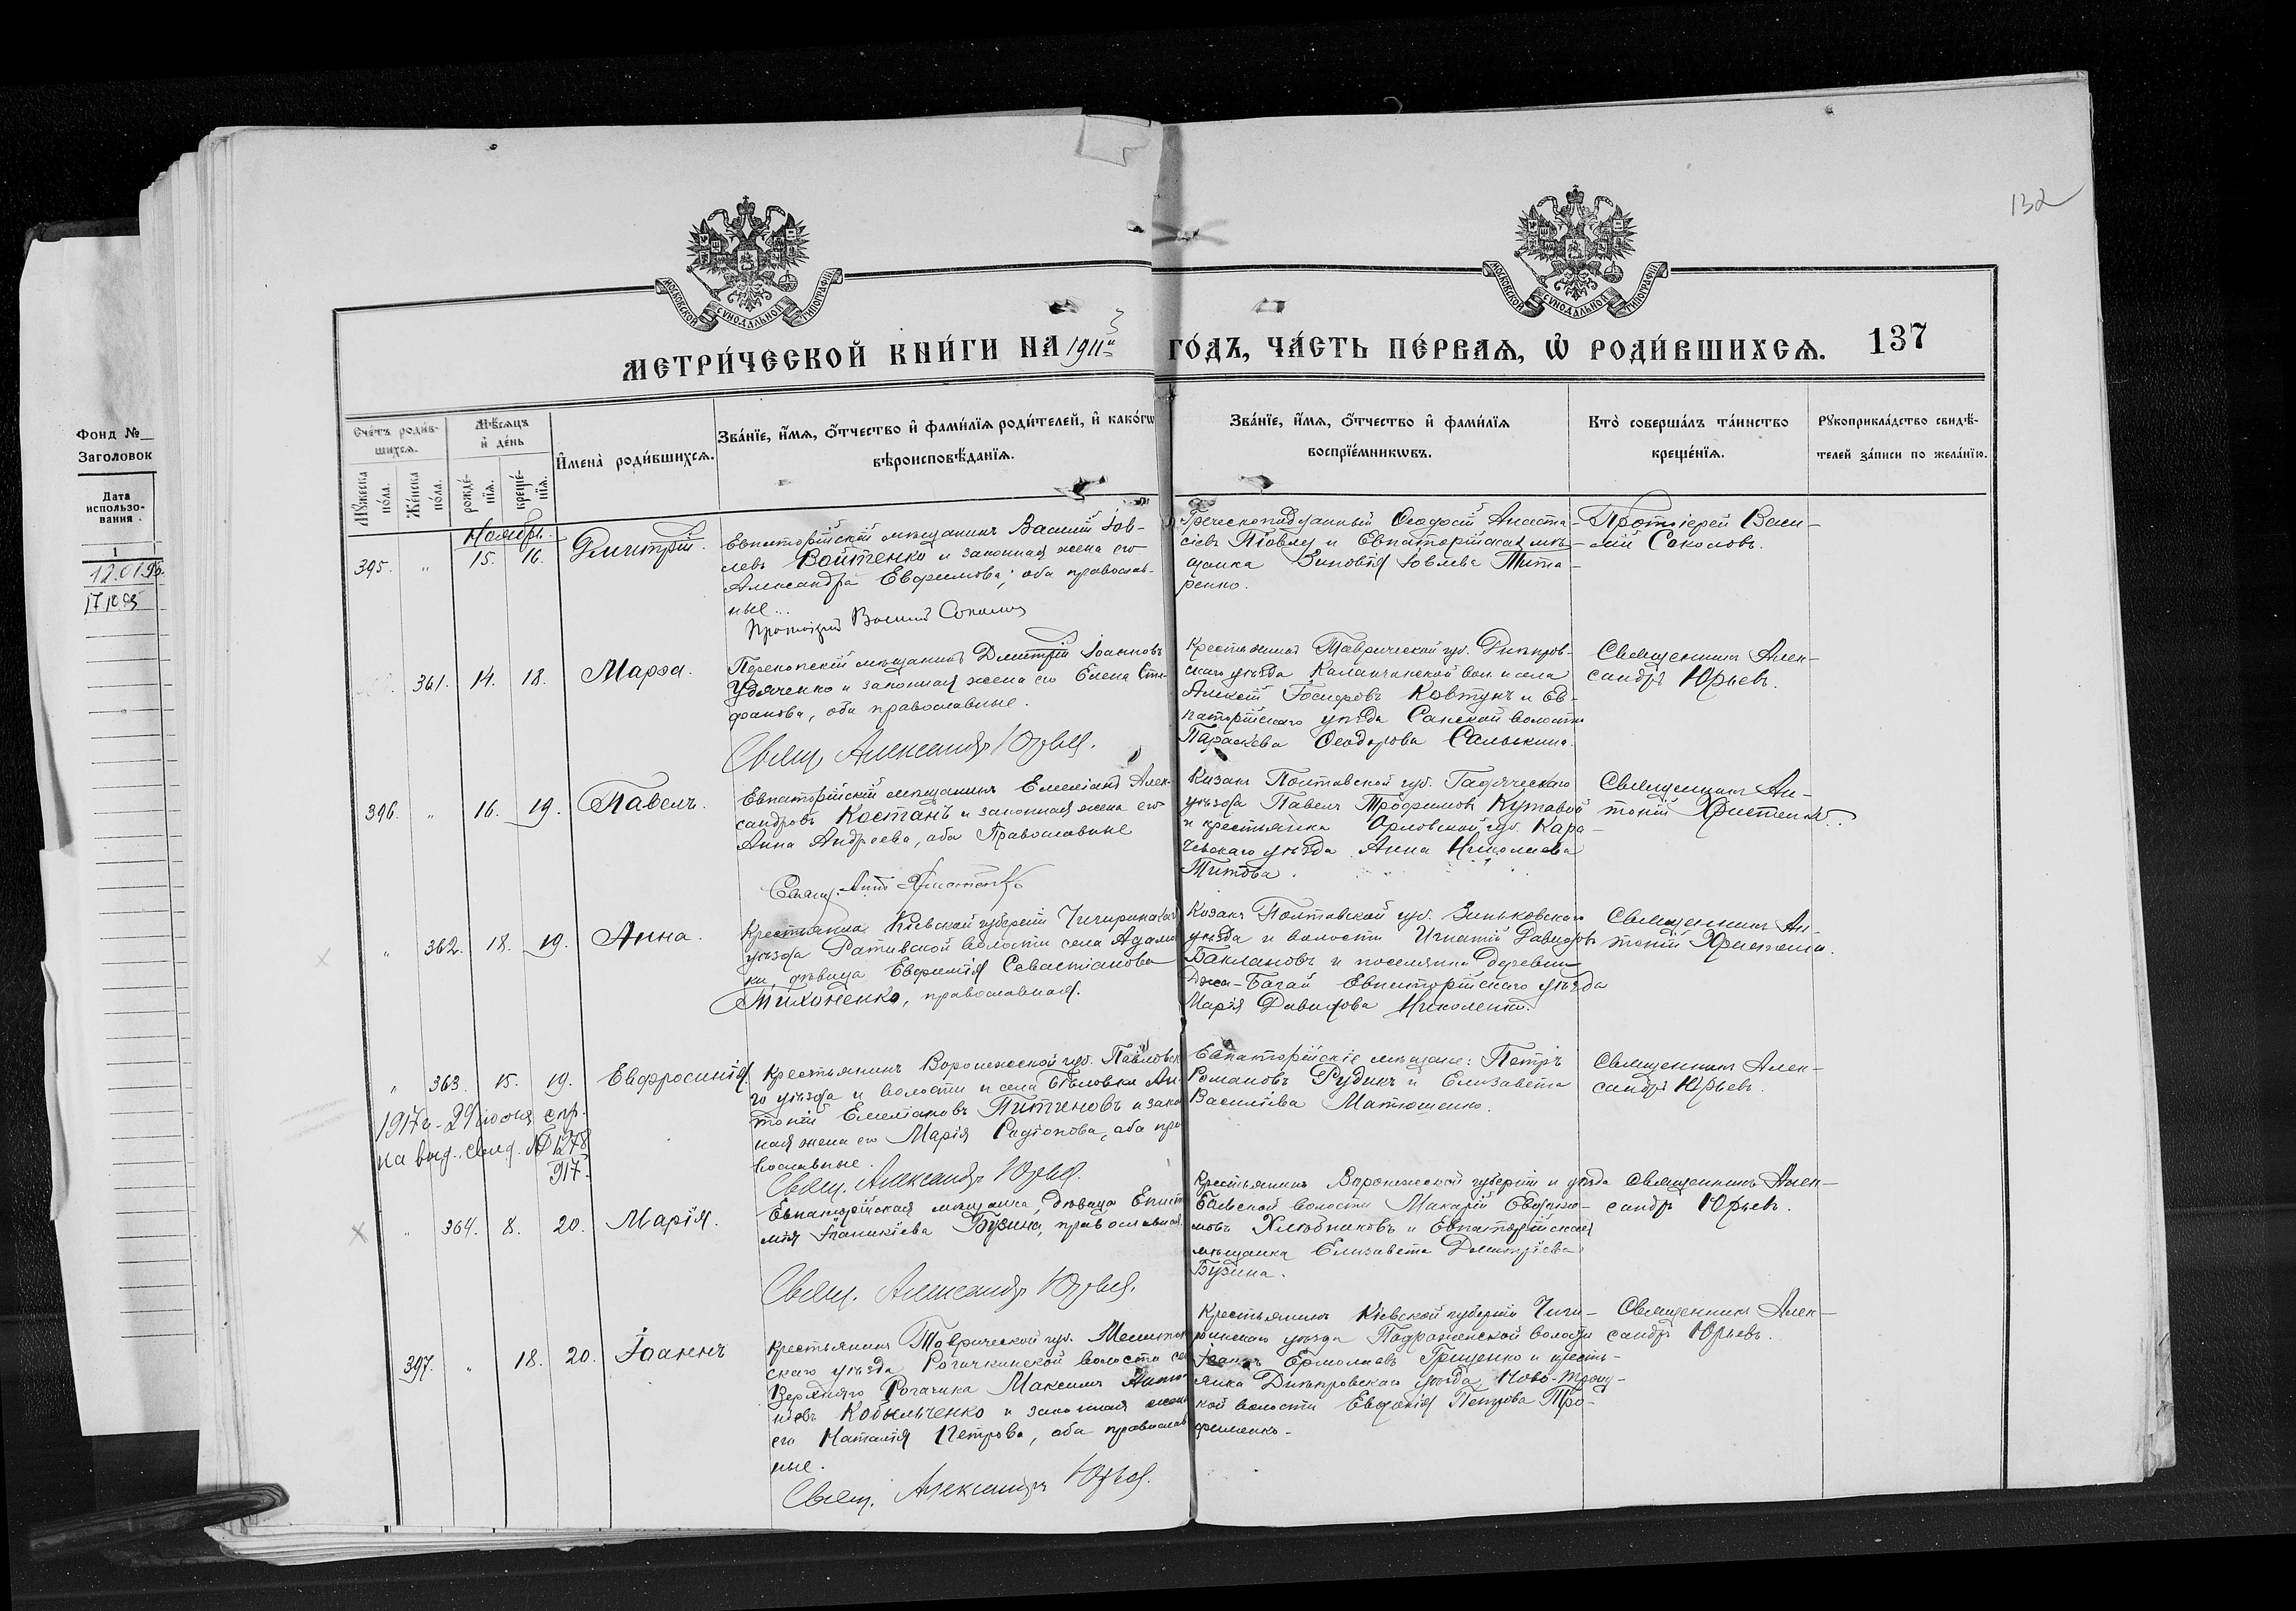 132
МОСКОВСКОЙ СѴНОДАЛЬНОЙ ТИПОГРАФІИ
МОСКОВСКОЙ СѴНОДАЛЬНОЙ ТИПОГРАФІИ
МЕТРИ́ЧЕСКОЙ КНИ́ГИ НА 1911 ГО́ДЪ, ЧА́СТЬ ПЕ́РВАѦ, Ѡ҆ РОДИ́ВШИХСѦ. 137
Фонд №
Заголовок
Дата
использо-
вания
1
12.01.95.
17.10.95
Сче́тъ роди́в-
шихсѧ.
Мꙋ́жеска
по́ла.
Же́нска
по́ла.
Мѣ́сѧцъ
и҆ де́нь
рожде́-
нїѧ.
креще́-
нїѧ.
И҆мена̀ роди́вшихсѧ.
Зва́нїе, и҆́мѧ, ѻ҆́тчество и҆ фами́лїѧ роди́телей, и҆ како́гѡ
вѣроисповѣ́данїѧ.
Зва́нїе, и҆́мѧ, ѻ҆́тчество и҆ фами́лїѧ
воспрїе́мникѡвъ.
Кто̀ соверша́лъ та́инство
креще́нїѧ.
Рꙋкоприкла́дство свидѣ́-
телей за́писи по жела́нїю.
Ноябрь.
395. " 15. 16. Дмитрій.
Евпаторійскій мѣщанинъ Василій Іов-
левъ Войтенко и законная жена его
Александра Евфимова; оба православ-
ные...
Протоіерей Василій Соколовъ
Греческоподданный Ѳеодосій Анаста-
сіевъ Піовлу и Евпаторійская мѣ-
щанка Зиновія Іовлева Тита-
ренко.
Протоіерей Васи-
лій Соколовъ.
361. 14. 18. Марѳа.
Перекопскій мѣщанинъ Дмитрій Іоанновъ
Удяченко и законная жена его Елена Сте-
фанова, оба православные.
Свящ. Александръ Юрьевъ.
Крестьянинъ Таврической губ. Днѣпров-
скаго уѣзда Каланчакской вол. и села
Алексій Іосифовъ Ковтунъ и Ев-
паторійскаго уѣзда Сакской волости
Параскева Ѳеодорова Салькина.
Священникъ Алек-
сандръ Юрьевъ.
396. " 16. 19. Павелъ.
Евпаторійскій мѣщанинъ Емеліанъ Алек-
сандровъ Костанъ и законная жена его
Анна Андреева, оба Православные
Свящ. Ант.
Козакъ Полтавской губ. Гадячскаго
уѣзда Павелъ Трофимовъ Кутовой
и крестьянка Орловской губ. Кара-
чевскаго уѣзда Анна Николаева
Титова.
Священникъ Ан-
тоній
" 362. 18. 19. Анна.
Крестьянка Кіевской губерніи Чигиринскаго
уѣзда Ративской волости села Адамов
ки, дѣвица Евфимія Севастіанова
Тихоненко, православная.
Козакъ Полтавской губ. Зиньковскаго
уѣзда и волости Игнатій Давидовъ
Баклановъ и поселянка деревни
Джа-Багай Евпаторійскаго уѣзда
Марія Давидова
Священникъ Ан-
тоній
" 363. 15. 19. Евфросинія.
1917 г. 29 іюня спр.
на выд. свид. № 1278
917.
Крестьянинъ Воронежской губ. Павловска
го уѣзда и волости и села Ан-
тоній Емеліановъ Питиновъ и закон
ная жена его Марія Родіонова, оба пра
вославные.
Свящ. Александръ Юрьевъ.
Евпаторійскіе мѣщане: Петръ
Романовъ Рудикъ и Елизавета
Василіева Матюшенко.
Священникъ Алек-
сандръ Юрьевъ.
" 364. 8. 20. Марія.
Евпаторійская мѣщанка, дѣвица Еписти
мія Іоаникіева Бузина, православная.
Свящ. Александръ Юрьевъ.
Крестьянинъ Воронежской губерніи и уѣзда
волости Макарій Евфимо-
мовъ Хлѣбниковъ и Евпаторійская
мѣщанка Елизавета Димитріева
Бузина.
Священникъ Алек-
сандръ Юрьевъ.
397. " 18. 20. Іоаннъ
Крестьянинъ Таврической губ. Мелитополь
скаго уѣзда Рогачикской волости се
Верхняго Рогачика Максимъ Анто
ніевъ Кобыльченко и законная жена
его Наталія Петрова, оба православ
ные.
Свящ. Александръ Юрьевъ.
Крестьянинъ Кіевской губерніи Чиги-
ринскаго уѣзда волости
Іоаннъ Ермолаевъ Грищенко и кресть-
янка Днѣпровскаго уѣзда Ново-Троиц-
кой волости Евдокія Петрова Тро-
фименко.
Священникъ Алек-
сандръ Юрьевъ.